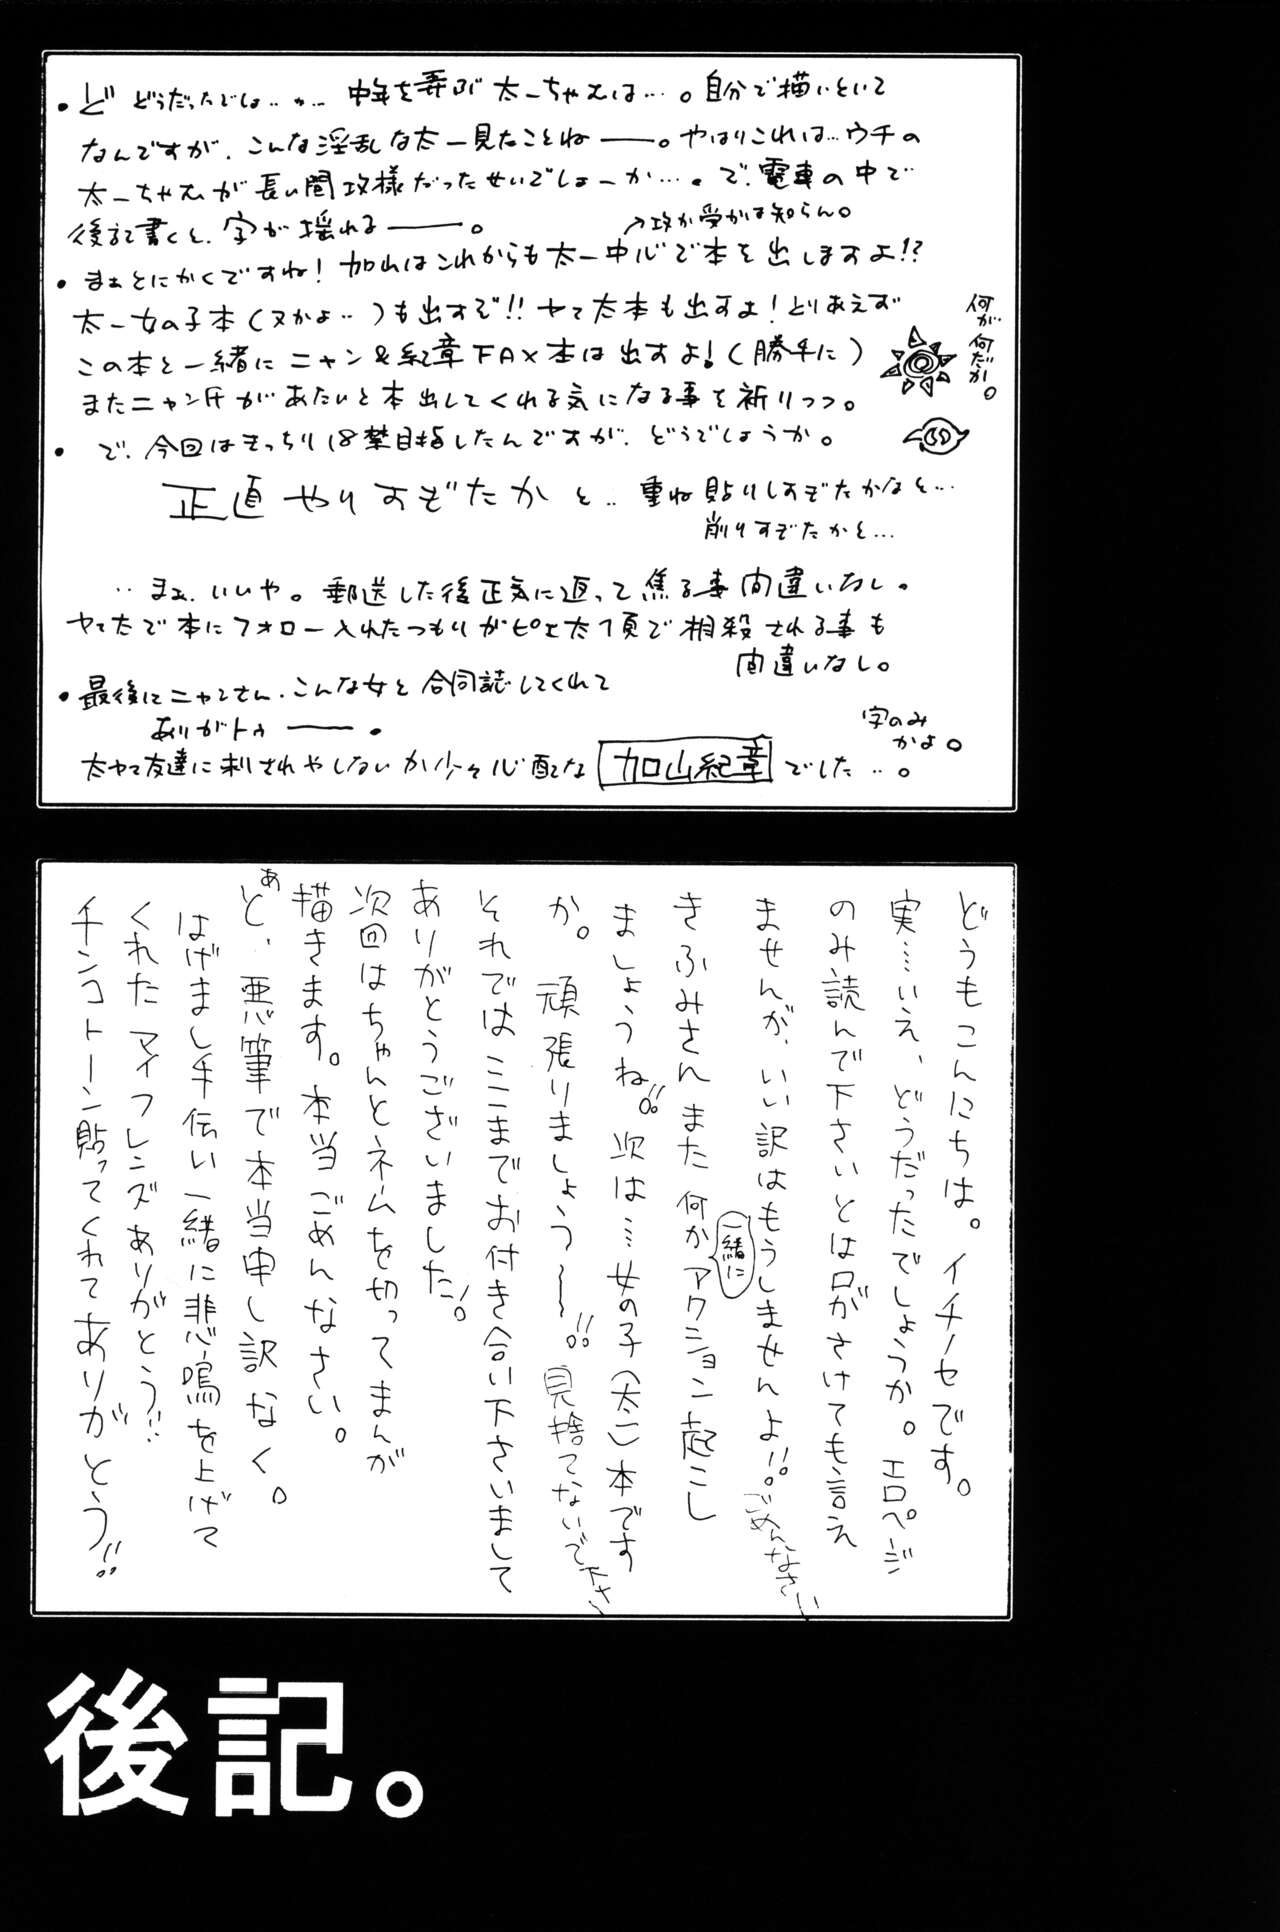 ・ど どうだったでしょ‥か… 中年を弄ぶ太一ちゃむは…。自分で描いといて
なんですが、こんな淫乱な太一見たことねー。やはりこれは…ウチの
太一ちゃむが長い間攻様だったせいでしょーか…。で、電車の中で
後記書くと、字が揺れるー。
→攻か受かは知らん。
・まぁとにかくですね！加山はこれからも太一中心で本を出しますよ!?
太一女の子本(又かよ‥)も出すぞ!!ヤマ太本も出すよ！とりあえず
この本と一緒にニャン&紀章FAX本は出すよ！(勝手に)
またニャン氏があたいと本出してくれる気になる事を祈りつつ。
何が何だか。
・で、今回はきっちり18禁目指したんですが、どうでしょうか。
正直やりすぎたかと‥重ね貼りしすぎたかなと…
削りすぎたかと…
‥まぁ、いいや。郵送した後正気に返って焦る事間違いなし。
ヤマ太で本にフォロー入れたつもりがピエ太1頁で相殺される事も
間違いなし。
・最後にニャンさん、こんな女と合同誌してくれて
ありがトゥー。
字のみかよ。
太ヤマ友達に刺されやしないか少々心配な 加山紀章 でした‥。
どうもこんにちは。イチノセです。
実…いえ、どうだったでしょうか。エロページ
のみ読んで下さいとは口がさけても言え
ませんが、いい訳はもうしませんよ!!。ごめんなさい
きふみさんまた何か一緒にアクション起こし
ましょうね!!。次は…女の子(太一)本です
か。頑張りましょう〜〜!!。見捨てないで下さい
それではここまでお付き合い下さいまして
ありがとうございました！。
次回はちゃんとネームを切ってまんが
描きます。本当ごめんなさい。
あと、悪筆で本当申し訳なく。
はげまし手伝い一緒に悲鳴を上げて
くれたマイフレンズありがとう!!
チンコトーン貼ってくれてありがとう!!
後記。